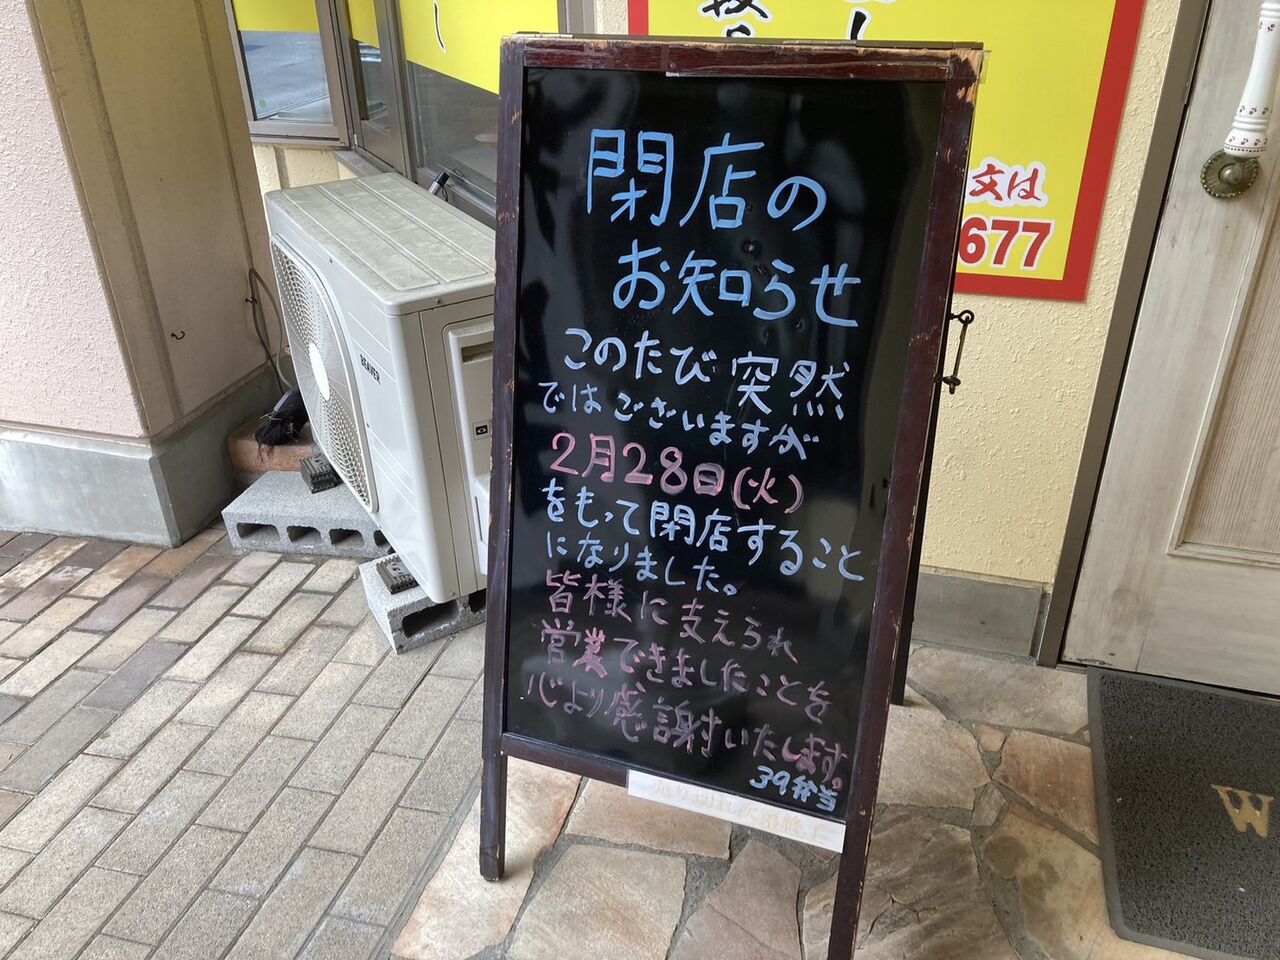 閉店の
お知らせ
このたび突然
ではございますが
2月28日(火)
をもって閉店すること
になりました。
皆様に支えられ
営業できましたことを
心より感謝いたします。
39弁当
売り切れ次第終了
文は
677
BEAVER
W